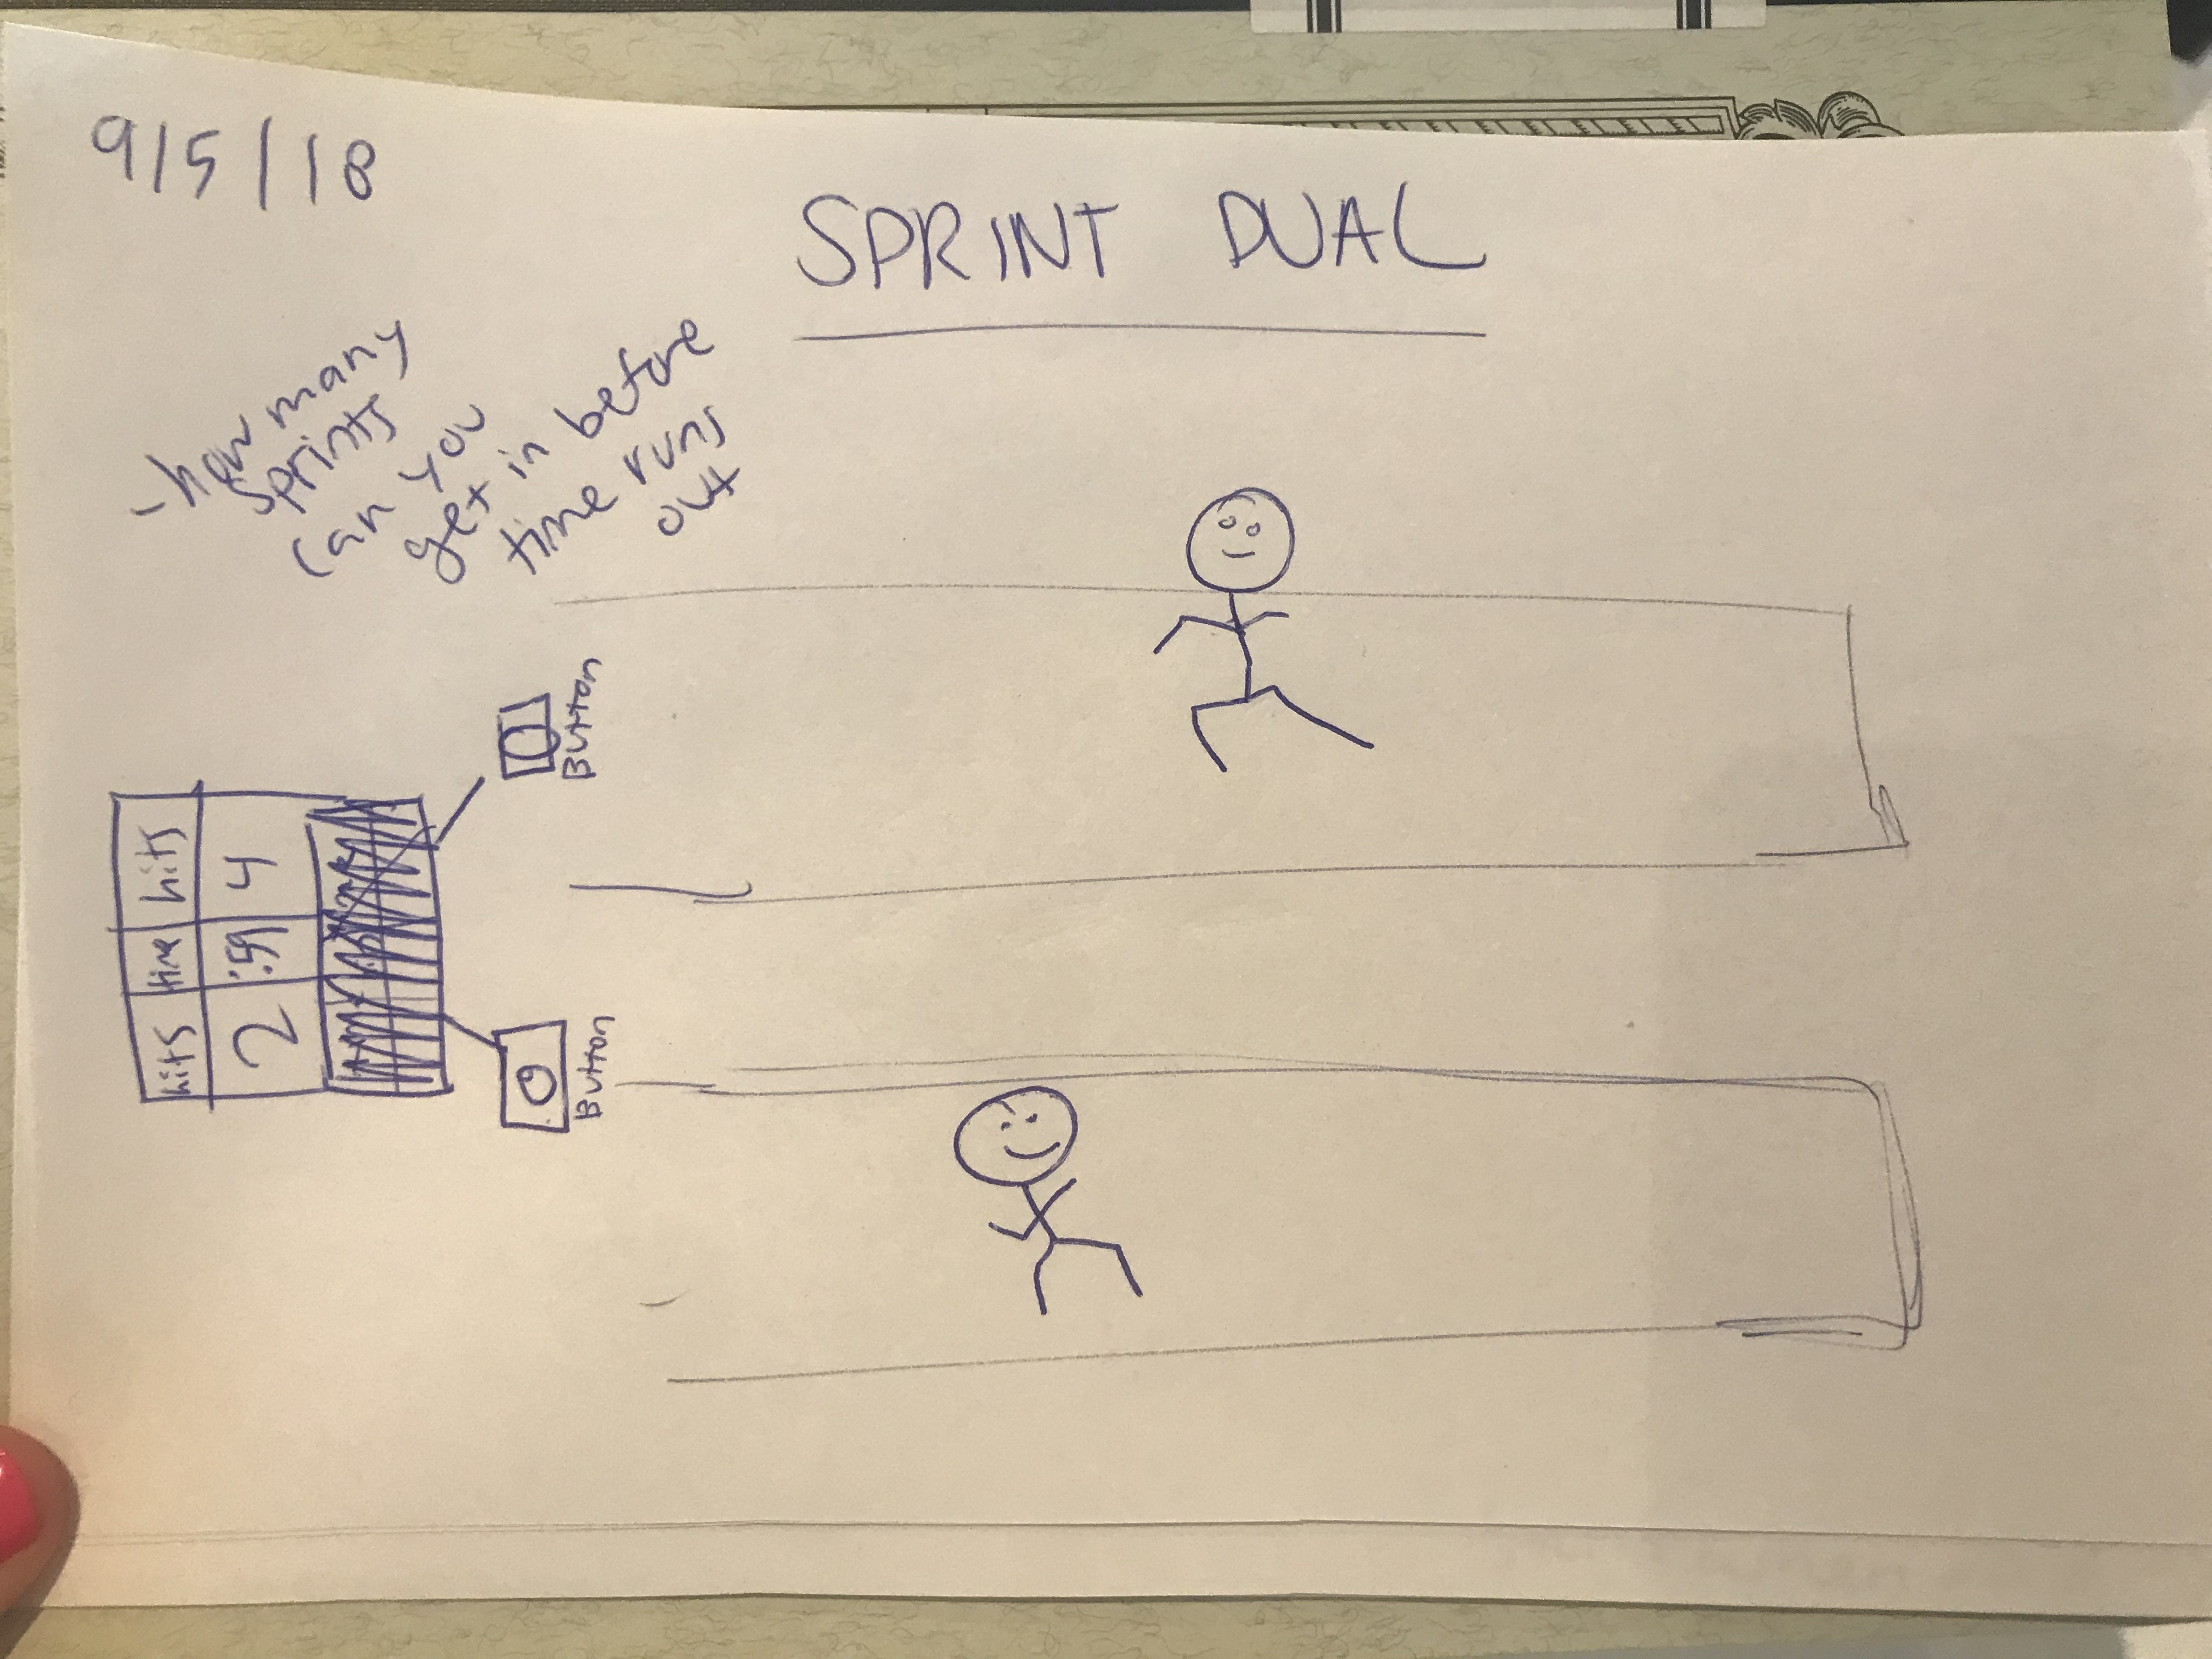 9/5/18
SPRINT DUAL
- how many
sprints
can you
get in before
time runs
out
Button
hits time hits
2 4
Button